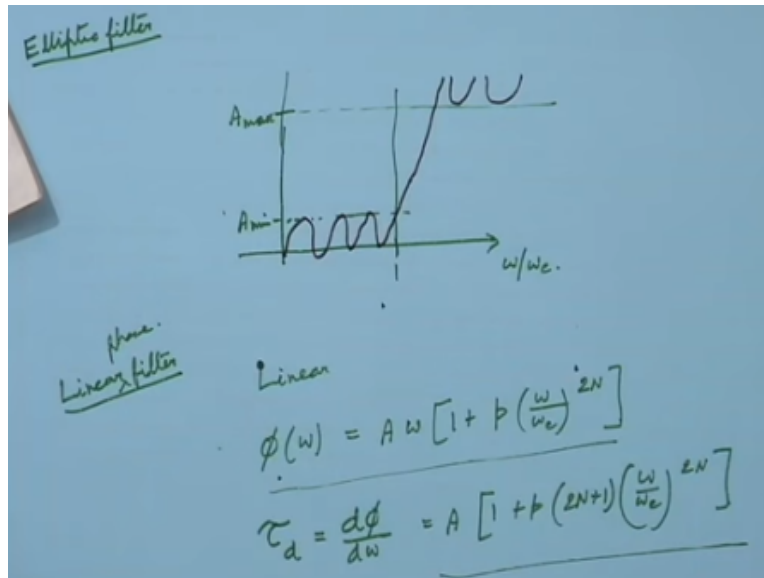 Elliptic filter
Amax
Amin
1
ω/ωc.
phase.
Linear filter
Linear
φ(ω) = A ω [1 + p (ω/ωc)^2N]
τd = dφ/dω = A [1 + p (2N+1) (ω/ωc)^2N]